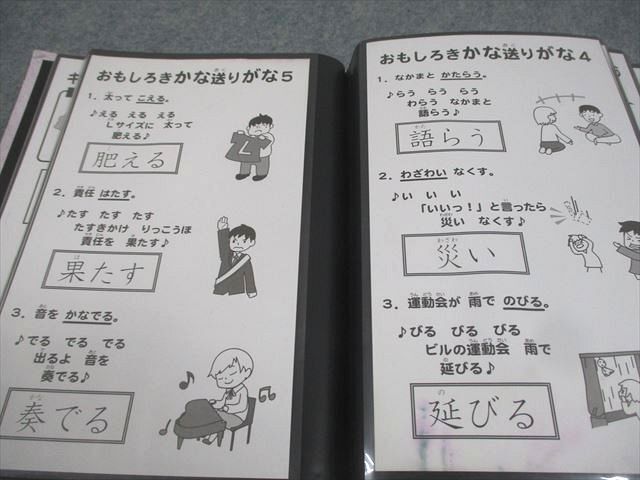 おもしろきかな送りがな５
１．太って こえる。
♪える える える
Ｌサイズに 太って
肥える♪
肥える
２．責任 はたす。
♪たす たす たす
たすきかけ りっこうほ
責任を 果たす♪
果たす
３．音を かなでる。
♪でる でる でる
出るよ 音を
奏でる♪
奏でる
おもしろきかな送りがな４
１．なかまと かたらう。
♪らう らう らう
わらう なかまと
語らう♪
語らう
２．わざわい なくす。
♪い い い
「いいっ！」と言ったら
災い なくす♪
災い
３．運動会が 雨で のびる。
♪びる びる びる
ビルの運動会 雨で
延びる♪
延びる